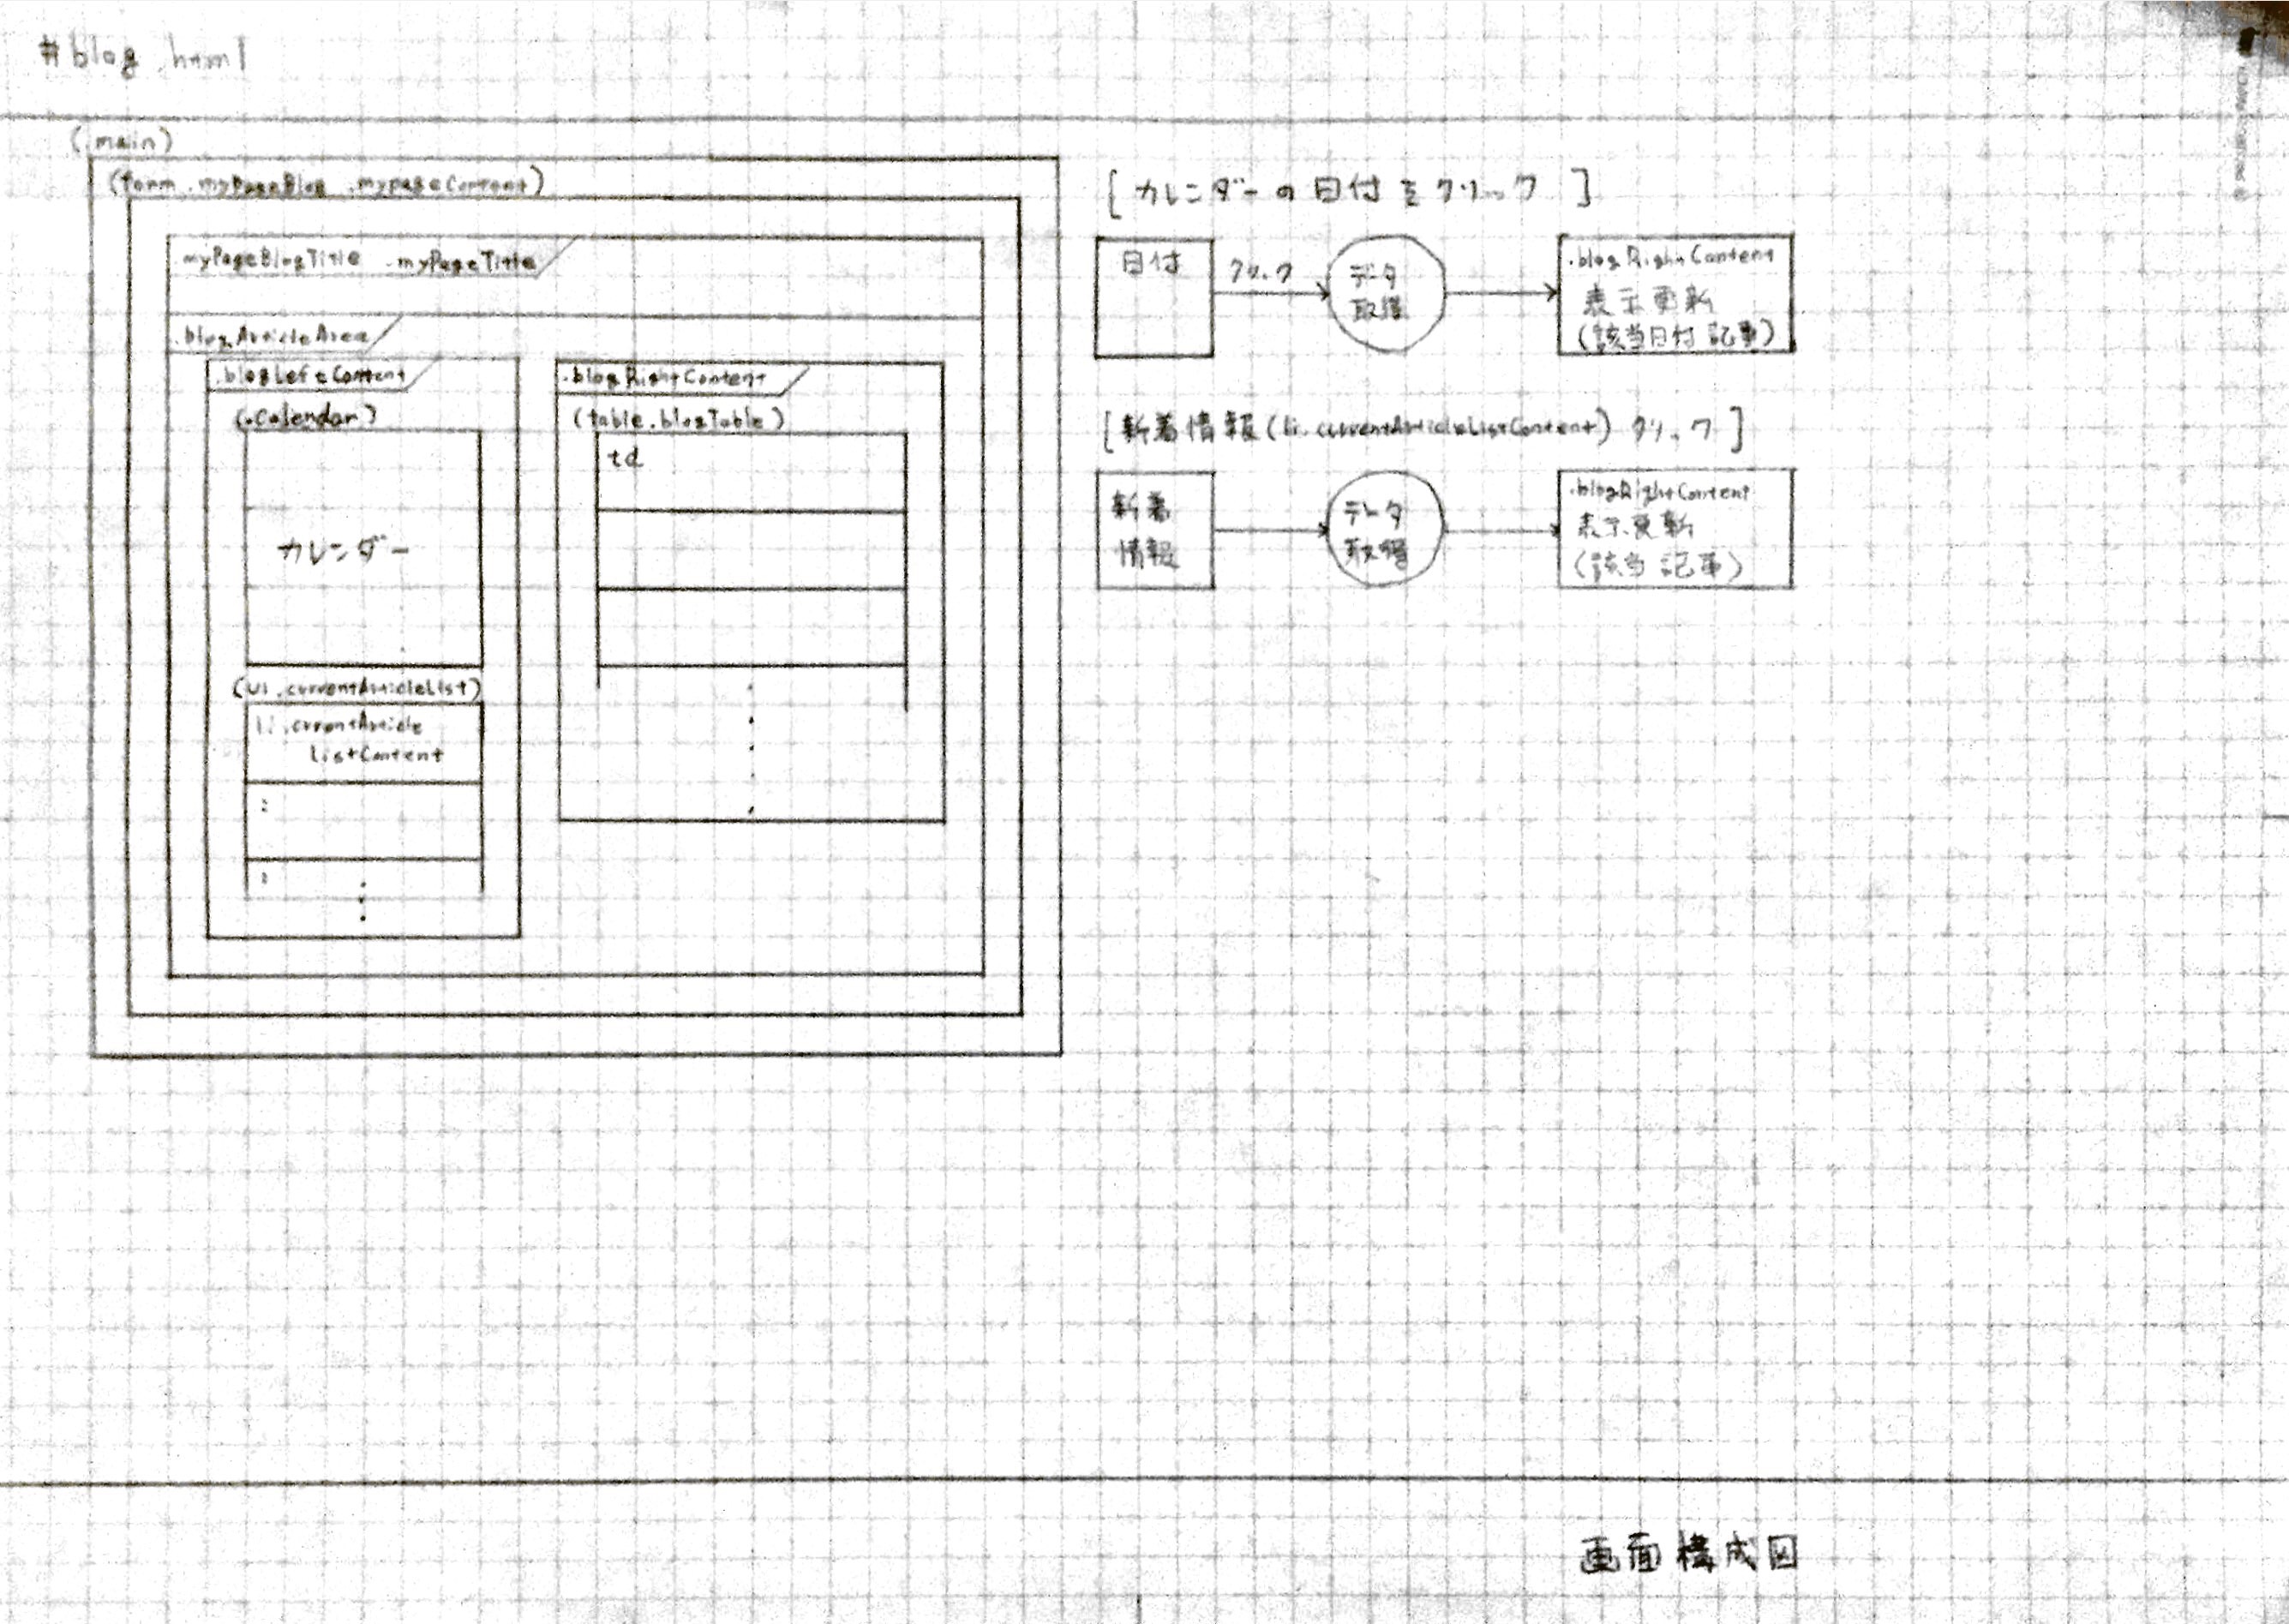 #blog.html
(.main)
(form .myPageBlog .mypageContent)
myPageBlogTitle .myPageTitle
.blogArticleArea
.blogLeftContent
(.Calendar)
カレンダー
(ul .currentArticleList)
li .currentArticle
listContent
:
:
.blogRightContent
(table.blogTable)
td
[カレンダーの日付をクリック]
日付
クリック
データ
取得
.blogRightContent
表示更新
(該当日付記事)
[新着情報(li.currentArticleListContent)クリック]
新着
情報
データ
取得
.blogRightContent
表示更新
(該当記事)
画面構成図